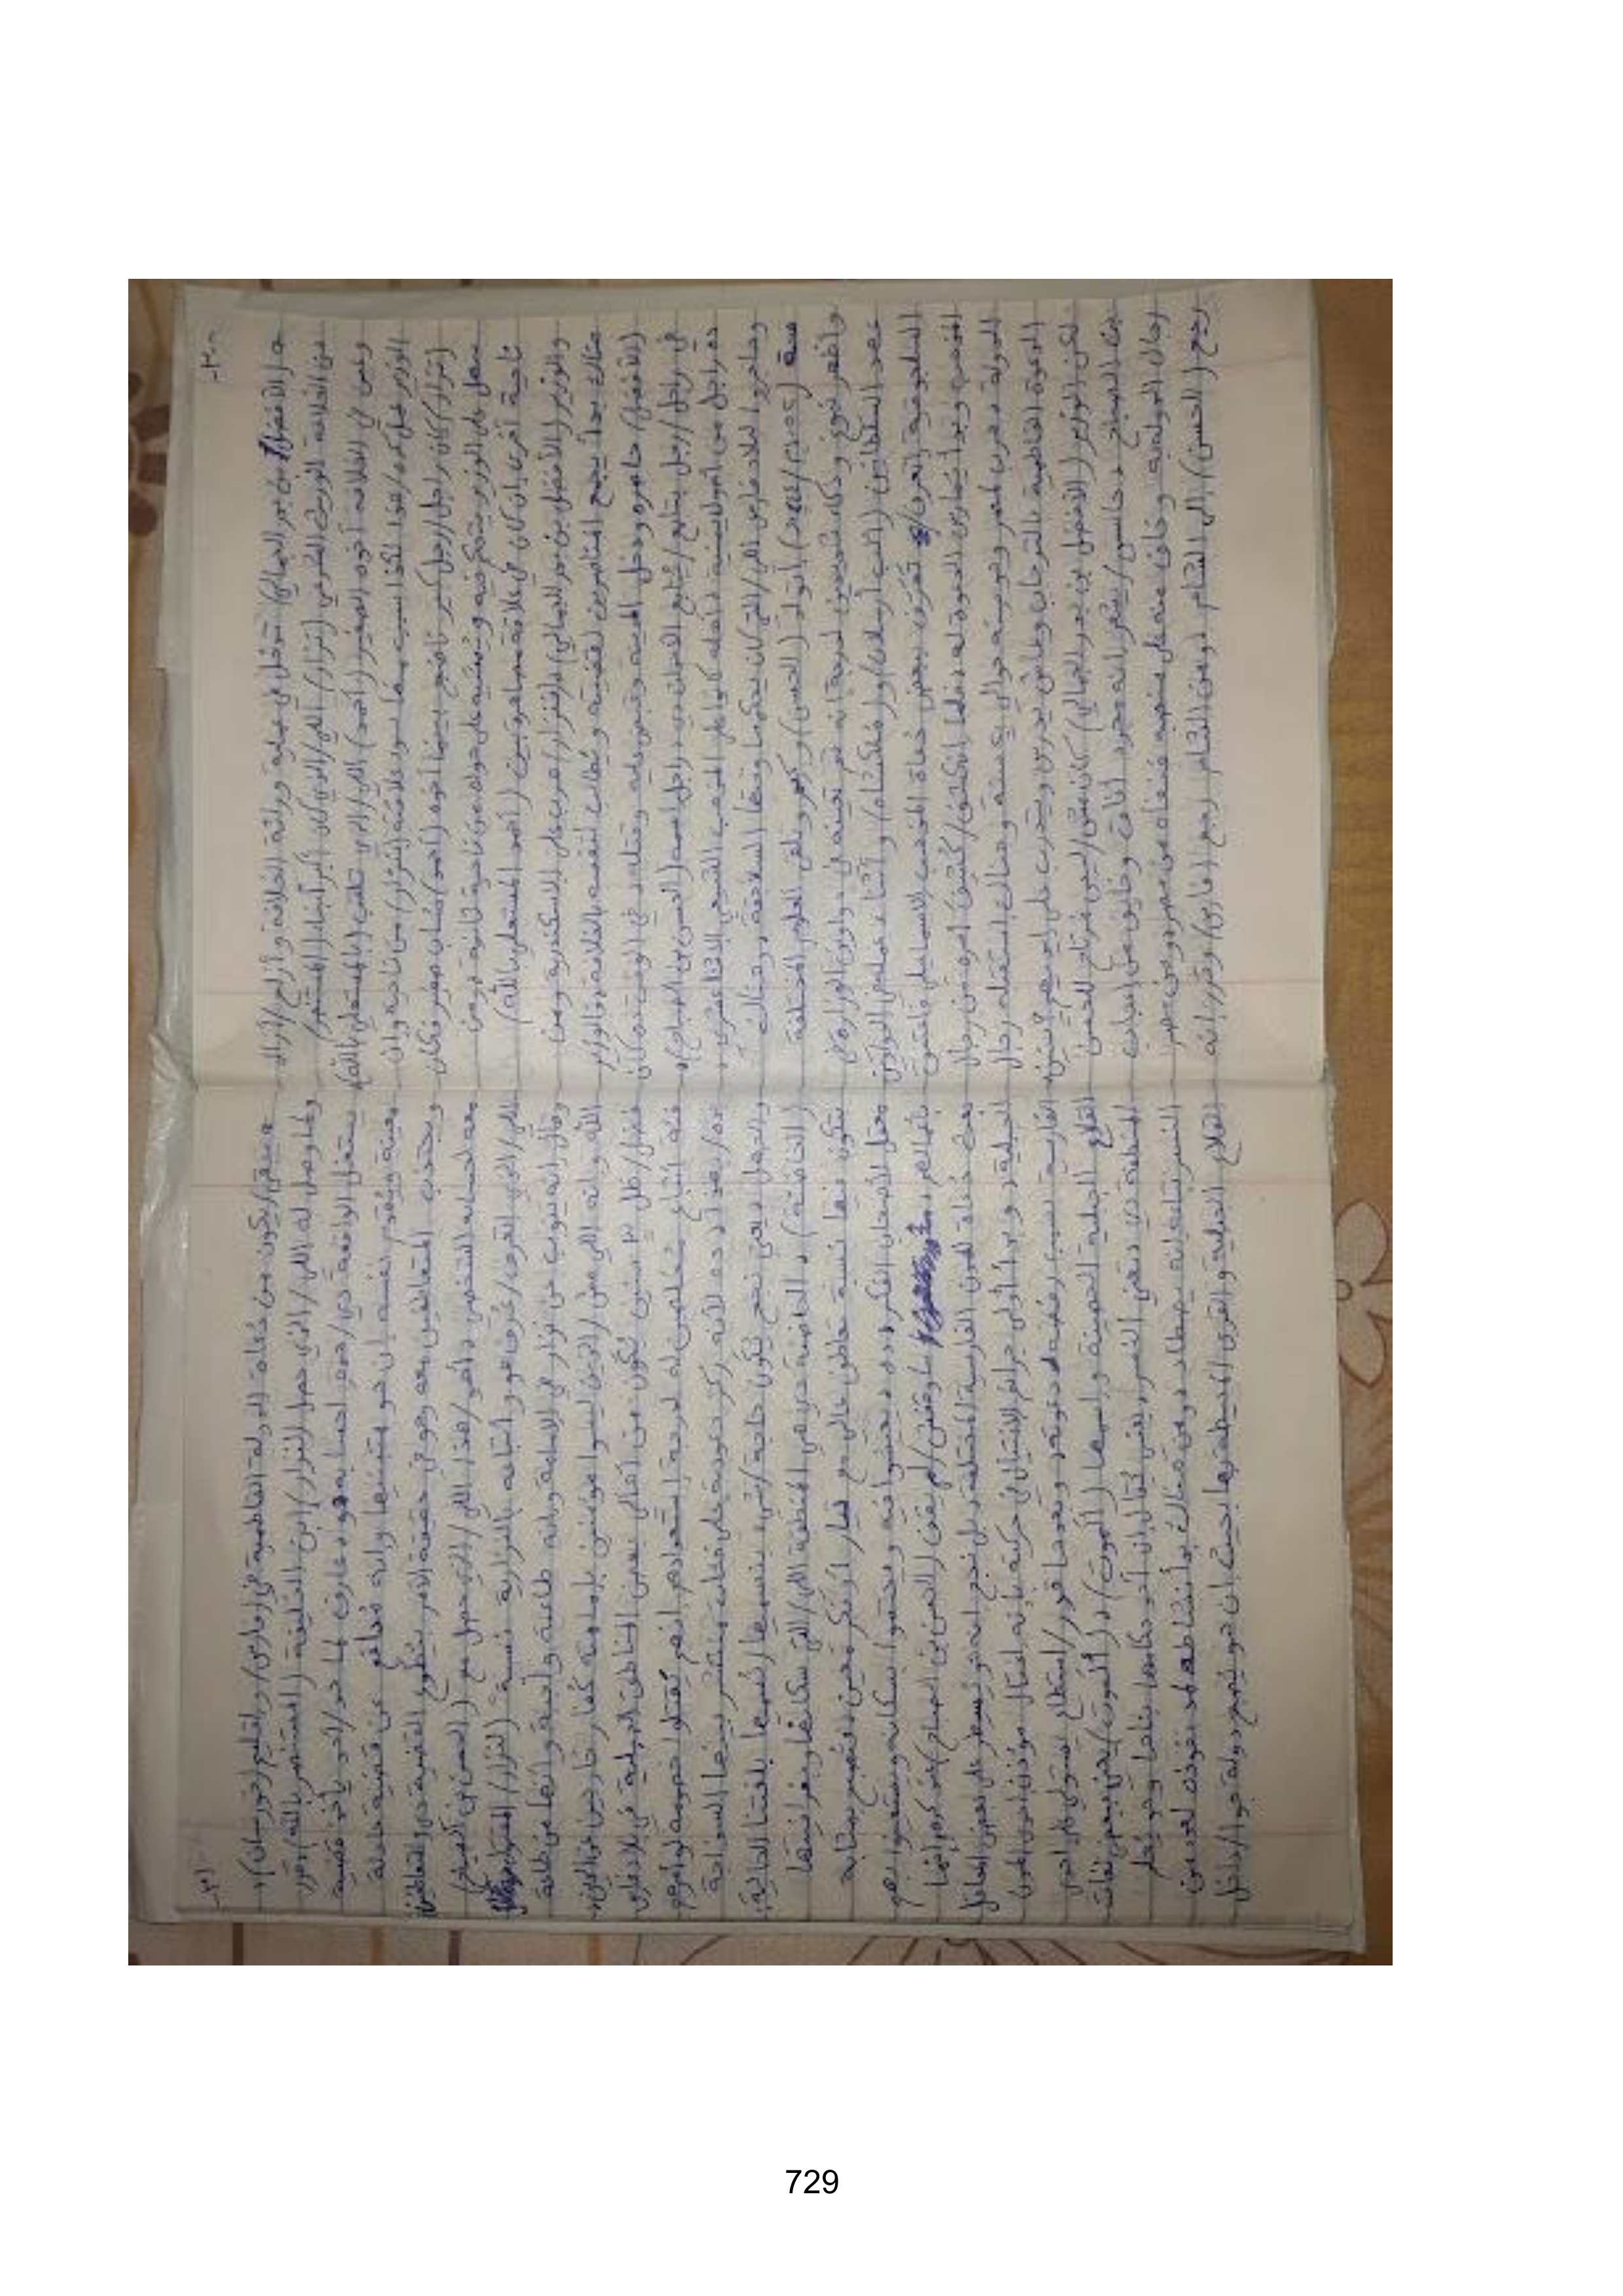 -٣٠
هو (الأفضل) بن بدر الجمالي) تدخل في عملية وراثة الخلافة و أزاح/أزال
من الخلافة الوريث الشرعي (نزار) اللي/الذي كان أكبر أبناء (المستنصر)
وعين في الخلافة أخوه الصغير (أحمد) اللي/الذي تلقب (بالمستعلي بالله)
الوزير عمل كده/هذا لكذا سبب منها سوء علاقته (بنزار) من ناحية وإن
(نزار) كان راجل/رجل كبير ناضج بينما أخوه (أحمد) شاب صغير فكان
سهل على الوزير يتحكم فيه و من ناحية ثانية ومن
ناحية أخرى كان في علاقة مصاهرة بين (أحمد المستعلي بالله)
والوزير (الأفضل بن بدر الجمالي) (نزار) هرب على الاسكندرية ومن
هناك بدأ يجمع المناصرين لقضيته و يُطالب لنفسه بالخلافة، الوزير
(الأفضل) حاصره ودخل المدينة وقبض عليه وقتله، في الوقت ده كان
في راجل/رجل يتابع الأحداث دي، راجل اسمه (الحسن بن الصباح)،
ده راجل من أصول يمنية أهله كانوا على المذهب الشيعي الاثنا عشري،
وهاجروا لبلاد فارس اللي/التي كان يحكمها وقتها السلاجقة، وهناك
سنة اتولد (الحسن) وكبر وتلقى العلوم المختلفة
وأظهر نبوغ وذكاء شديدين لدرجة انه تم تعيينه في دواوين الوزارة في
عهد السلطانين (ألب أرسلان) و(ملكشاه)، وأثناء عمله في الدواوين
السلجوقية اتعرف تعرف ببعض دعاة المذهب الاسماعيلي فاعتنق
المذهب وبدأ يمارس الدعوة له، دعاة رجال
الدولة، هرب لمصر وهو سنه حوالي سنة وهناك استقبله رجال
الدعوة الفاطمية بالترحاب وعاش يدرس ويتدرب على ايديهم سنين
لكن الوزير (الأفضل بن بدر الجمالي) كان مش/ليس مرتاح للحسن
بن الصباح، حاسس/يشعر انه مجرد أفاق وخايف من أعيان
رجال الدولة وخاف منه على منصبه فنفاه من مصر، ومن مصر
رجع (الحسن) إلى الشام، ومن الشام رجع (فارس) وقرر انه
-٣١
هيبقى/يكون من دعاة الدولة الفاطمية في (فارس) وإقليم (خورسان)،
ولما وصل له اللي/الذي حصل (لنزار) ابن الخليفة (المستنصر بالله) قرر
يستغل الواقعة دي/هذه لحسابه، هو عارف لما حد/أحد ياخد قضية
معينة ويقدم نفسه بإن هو متبنيها وإنه مُدافع عن قضية عادلة
ويجتذب المتعاطفين معه وهو في حقيقة الأمر يُطوع القضية دي والمتعاطفين
معه لحسابه الشخصي، وهو هذا اللي/الذي حصل مع (الحسن بن الصباح)
اللي/الذي اتعرف/عُرف هو وأتباعه بالنزارية نسبة (لنزار)
وقال إنه ينوب عن نزار في الإمامة وإنه طاعته واجبة وإنها من طاعة
الله وإنه اللي مش/الذين ليسوا مؤمنين بإمامته كفار خارجين عن الدين،
فضل/ظل ٣ سنين يكون من أهالي بعض المناطق الجبلية في بلاد فارس
فئة أتباع مخلصين له لدرجة استعدادهم انهم يقتلوا خصومه لو أمرهم
ده/بهذا، ده لأنه ركز دعوته على فئات منتشر بينها السذاجة
والجهل، يعني نجح يكون حاجة/شيء بنسميها/نُسميها بلغتنا الحالية:
(الحاضنة)، الحاضنة دي هي المنطقة اللي/التي سكانها وعمرانها
تتكون فيها نسبة تعاطف عالي مع تيار أو فكر معين فتصبح بمثابة
معمل لأصحاب الفكر ده، يعيشوا فيه ويحتموا بسكانه ويستعينوا بهم
ما وقفش/لم يقف (الحسن بن الصباح) عند كونه انها
بعث دعاة للمدن الفارسية المختلفة، بل نجح انه يُسيطر على بعض المعاقل
الجبلية، وبدأ أولى جرائم الاغتيال في حركته بإنه اغتال مؤذن إحدى المدن
الفارسية لسبب رفضه دعوته، وبعدها فوراً استطاع يستولي على إحدى
القلاع الجبلية الحصينة واسمها (ألموت)، (ألموت) يعني ببعض لغات
المنطقة دي: تعني النسر، يُقال إن أحد حكامها بناها وهو يُعلم
النسر بتاعه إنه يصطاد، ومن هناك بدأ نشاطه نفوذه لعدد من
القلاع الجبلية والقرى المحيطة بها بحيث ان هو يصبح دولة جوا/داخل
729